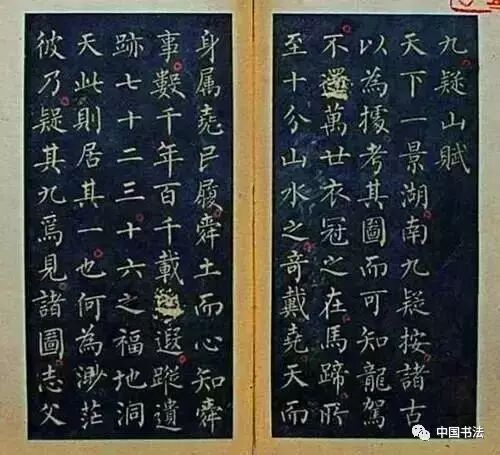 九疑山賦
天下一景湖南九疑按諸古
以為據考其圖而可知龍駕
不還萬世衣冠之在馬蹄所
至十分山水之奇戴堯天而
身属堯民履舜土而心知舜
事數千年百千載遐蹤遺
跡七十二三十六之福地洞
天此則居其一也何為渺茫
彼乃疑其九焉見諸圖志父
中国书法